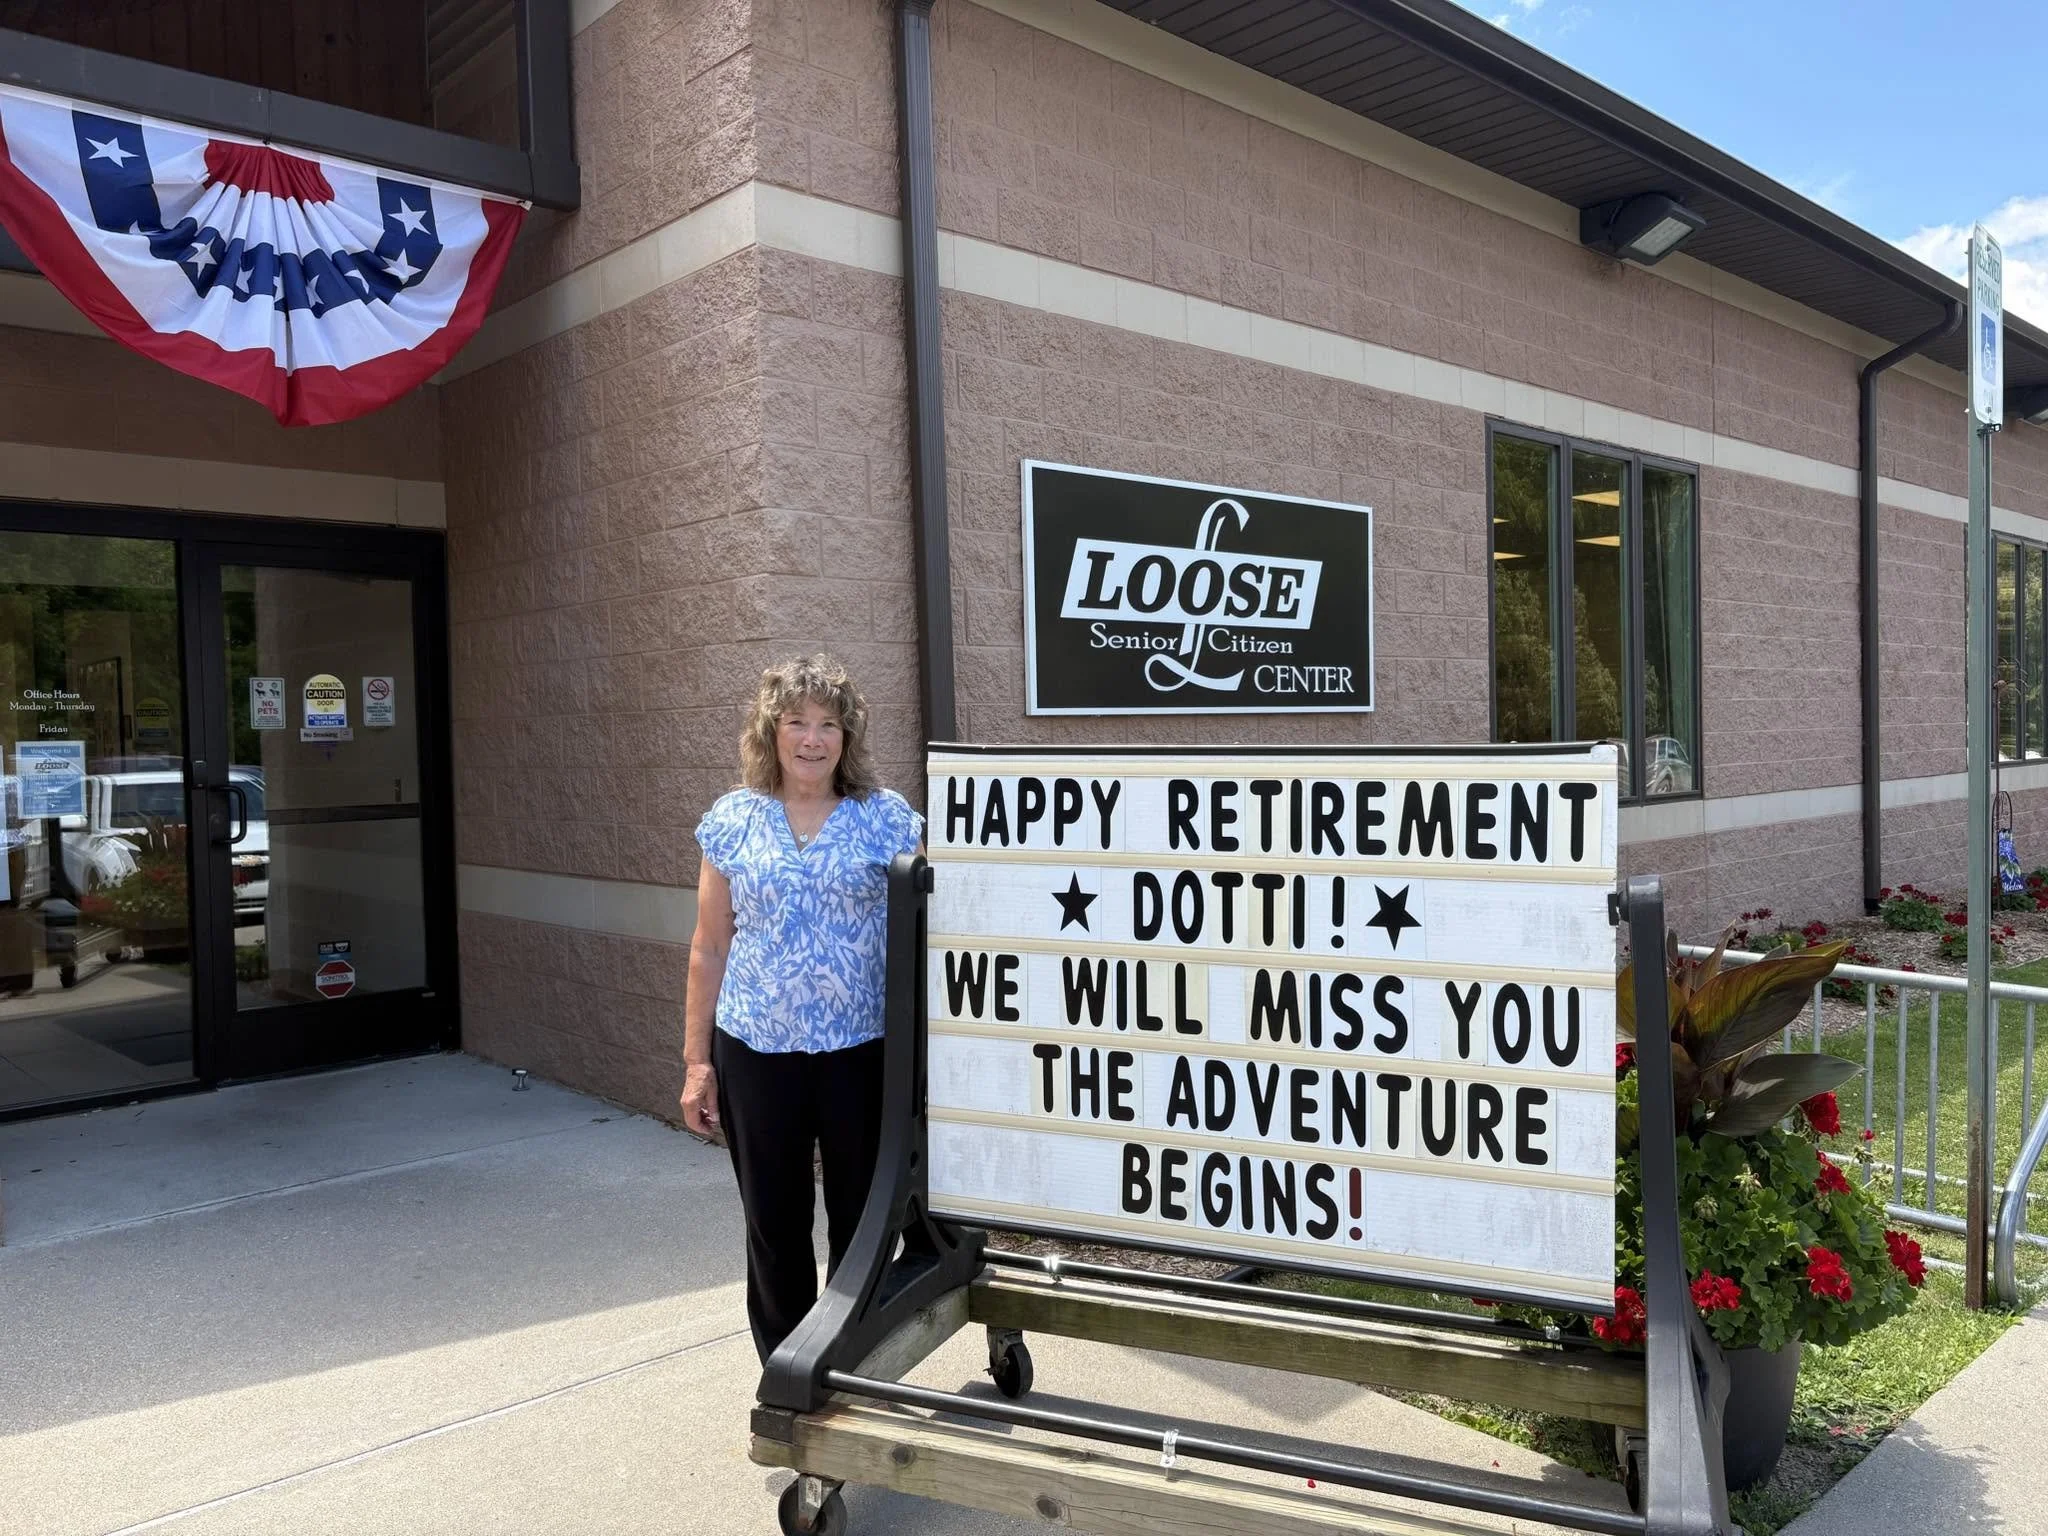 LOOSE
Senior Citizen
CENTER
HAPPY RETIREMENT
★ DOTTI! ★
WE WILL MISS YOU
THE ADVENTURE
BEGINS!
Office Hours
Monday - Thursday
Friday
Welcome to
LOOSE
NO
PETS
AUTOMATIC
CAUTION
DOOR
ACTIVATE SWITCH
TO OPERATE
No Smoking
CAUTION
RESERVED
PARKING
Welcome